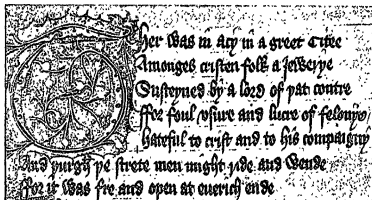 Ther was in acy in a greet Citee
Amonges cristen folk a Jewerye
Susteyned by a lord of þat contre
ffor foul vsure and lucre of felonye
hateful to crist and to his compaigny
And þurgh þe strete men might ride and wende
ffor it was fre and open at euerich ende